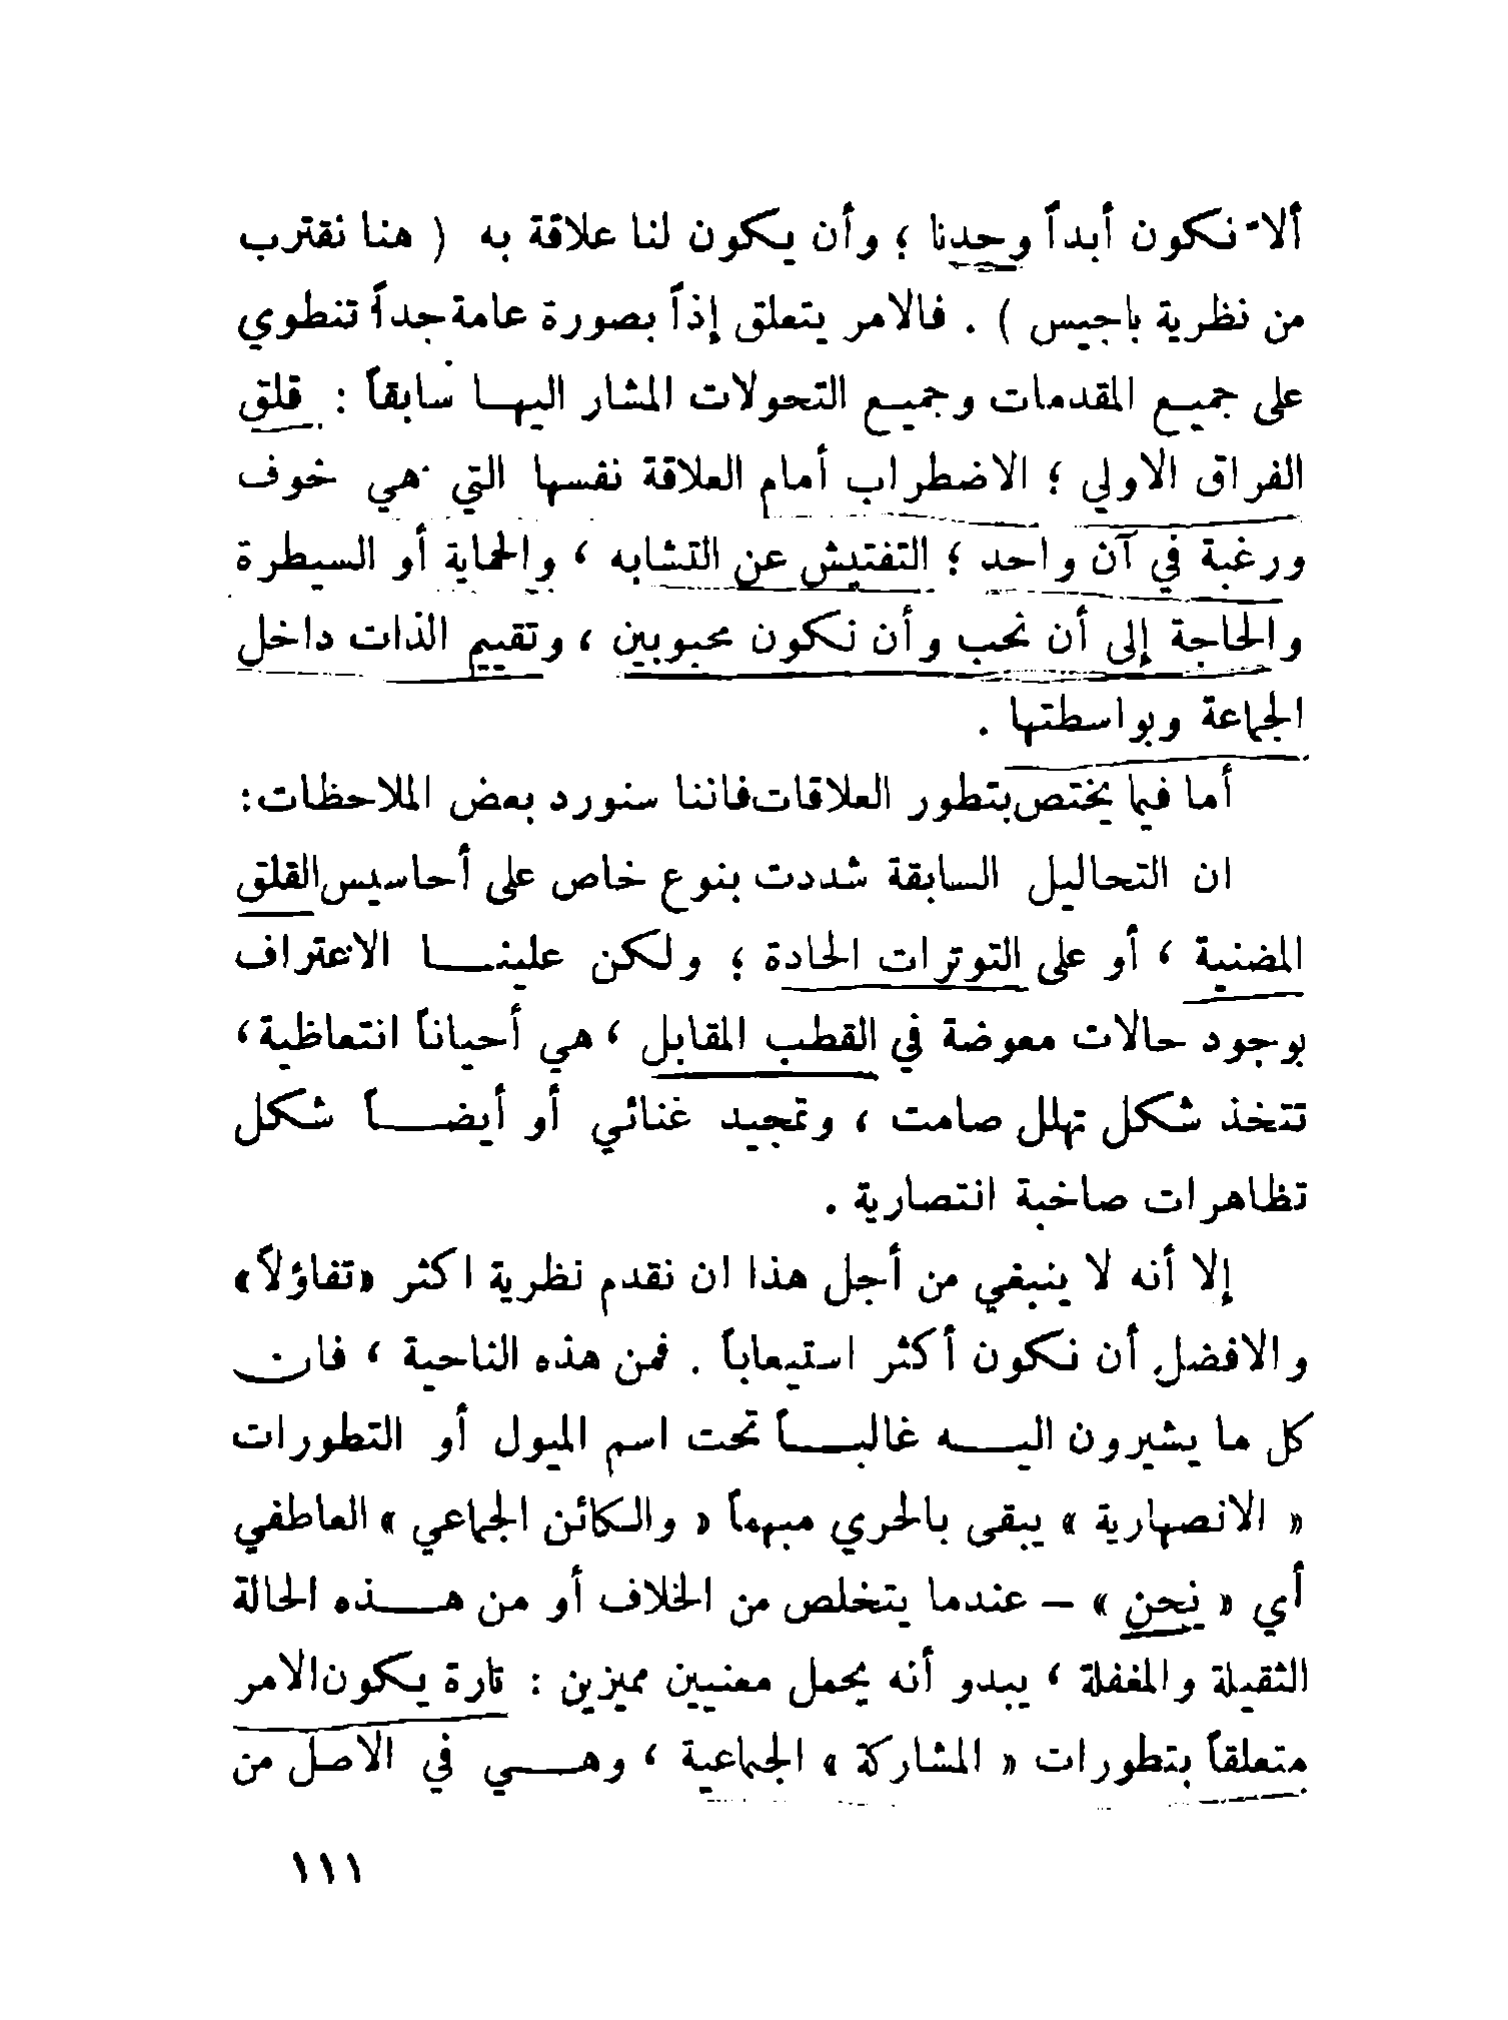 ألا نكون أبداً وحدنا ؛ وأن يكون لنا علاقة به ( هنا نقترب
من نظرية باجيس ) . فالامر يتعلق إذاً بصورة عامة جداً تنطوي
على جميع المقدمات وجميع التحولات المشار اليها سابقاً : قلق
الفراق الاولي ؛ الاضطراب أمام العلاقة نفسها التي هي خوف
ورغبة في آن واحد ؛ التفتيش عن التشابه ، والحماية أو السيطرة
والحاجة إلى أن نحب وأن نكون محبوبين ، وتقييم الذات داخل
الجماعة وبواسطتها .
أما فيما يختص بتطور العلاقات فاننا سنورد بعض الملاحظات :
ان التحاليل السابقة شددت بنوع خاص على أحاسيس القلق
المضنية ، أو على التوترات الحادة ؛ ولكن علينا الاعتراف
بوجود حالات معوضة في القطب المقابل ، هي أحياناً انتعاظية ،
تتخذ شكل تهلل صامت ، وتمجيد غنائي أو أيضاً شكل
تظاهرات صاخبة انتصارية .
إلا أنه لا ينبغي من أجل هذا ان نقدم نظرية اكثر «تفاؤلاً»
والافضل أن نكون أكثر استيعاباً . فمن هذه الناحية ، فان
كل ما يشيرون اليه غالباً تحت اسم الميول أو التطورات
« الانصهارية » يبقى بالحري مبهماً « والكائن الجماعي » العاطفي
أي « نحن » – عندما يتخلص من الخلاف أو من هذه الحالة
الثقيلة والمغفلة ، يبدو أنه يحمل معنيين مميزين : تارة يكون الامر
متعلقاً بتطورات « المشاركة » الجماعية ، وهي في الاصل من
١١١